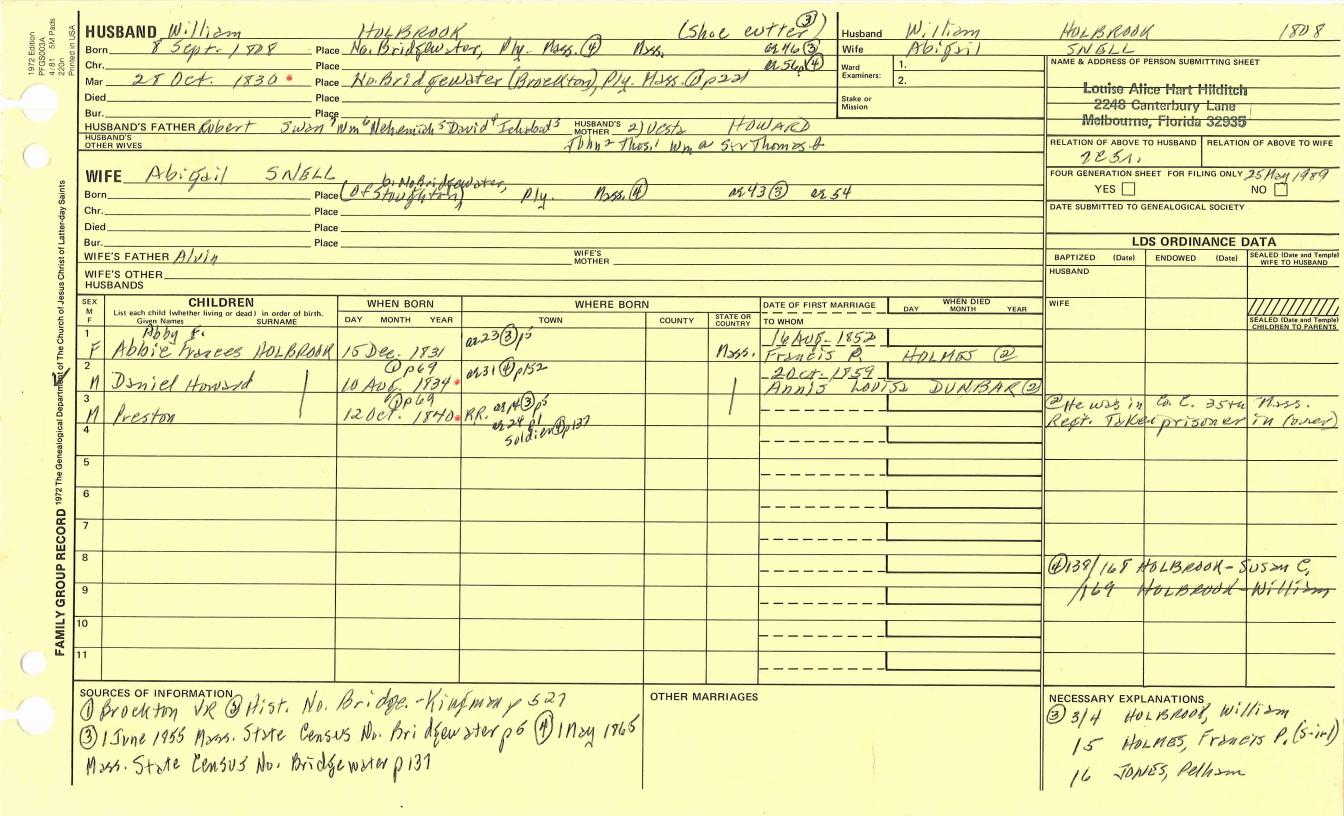 1972 Edition
PFGS003A
4/81 5M Pads
220n
Printed in USA
FAMILY GROUP RECORD 1972 The Genealogical Department of The Church of Jesus Christ of Latter-day Saints
HUSBAND William HOLBROOK (Shoe cutter ③)
Born 8 Sept. 1808 Place No. Bridgewater, Ply. Mass. ④ Mass. ae 46 ③
Chr. Place ae 56 ④
Mar 28 Oct. 1830 Place No. Bridgewater (Brockton), Ply. Mass. ① p221
Died Place
Bur. Place
HUSBAND'S FATHER Robert Swan Wm Nehemiah David Ichabod HUSBAND'S MOTHER 2) Vesta HOWARD
HUSBAND'S OTHER WIVES John Thos. Wm Sir Thomas
Husband William HOLBROOK 1808
Wife Abigail SNELL
Ward Examiners: 1.
2.
Stake or Mission
NAME & ADDRESS OF PERSON SUBMITTING SHEET
Louise Alice Hart Hilditch
2248 Canterbury Lane
Melbourne, Florida 32935
RELATION OF ABOVE TO HUSBAND RELATION OF ABOVE TO WIFE
FOUR GENERATION SHEET FOR FILING ONLY 25 May 1989
YES NO
DATE SUBMITTED TO GENEALOGICAL SOCIETY
WIFE Abigail SNELL
b. No Bridgewater,
Born Place (of Stoughton) Ply. Mass. ④ ae 43 ③ ae 54
Chr. Place
Died Place
Bur. Place
WIFE'S FATHER Alvin WIFE'S MOTHER
WIFE'S OTHER HUSBANDS
LDS ORDINANCE DATA
BAPTIZED (Date) ENDOWED (Date) SEALED (Date and Temple) WIFE TO HUSBAND
HUSBAND
WIFE
SEALED (Date and Temple) CHILDREN TO PARENTS
SEX M F CHILDREN WHEN BORN WHERE BORN DATE OF FIRST MARRIAGE WHEN DIED
List each child (whether living or dead) in order of birth.
Given Names SURNAME DAY MONTH YEAR TOWN COUNTY STATE OR COUNTRY TO WHOM DAY MONTH YEAR
1 Abby F. ae 23 ③ p5 16 Aug. 1852
F Abbie Frances HOLBROOK 15 Dec. 1831 Mass. Francis P. HOLMES ②
2 ① p69 ae 31 ④ p132 20 Oct. 1859
M Daniel Howard 10 Aug. 1834 Annis Louisa DUNBAR ②
3 ① p69 ae 14 ③ p5
M Preston 12 Oct. 1840 RR. ae 24 p1
soldier ④ p137
② He was in Co. C. 35th Mass.
Regt. Taken prisoner in (over)
4
5
6
7
8
9
10
11
④ 139/168 HOLBROOK - Susan C.
/169 HOLBROOK - William
SOURCES OF INFORMATION
① Brockton VR ② Hist. No. Bridge. - Kingman p 527
③ 1 June 1955 Mass. State Census No. Bridgewater p5 ④ 1 May 1865
Mass. State Census No. Bridgewater p137
OTHER MARRIAGES
NECESSARY EXPLANATIONS
③ 3/4 HOLBROOK, William
15 HOLMES, Francis P. (s-inl)
16 JONES, Pelham